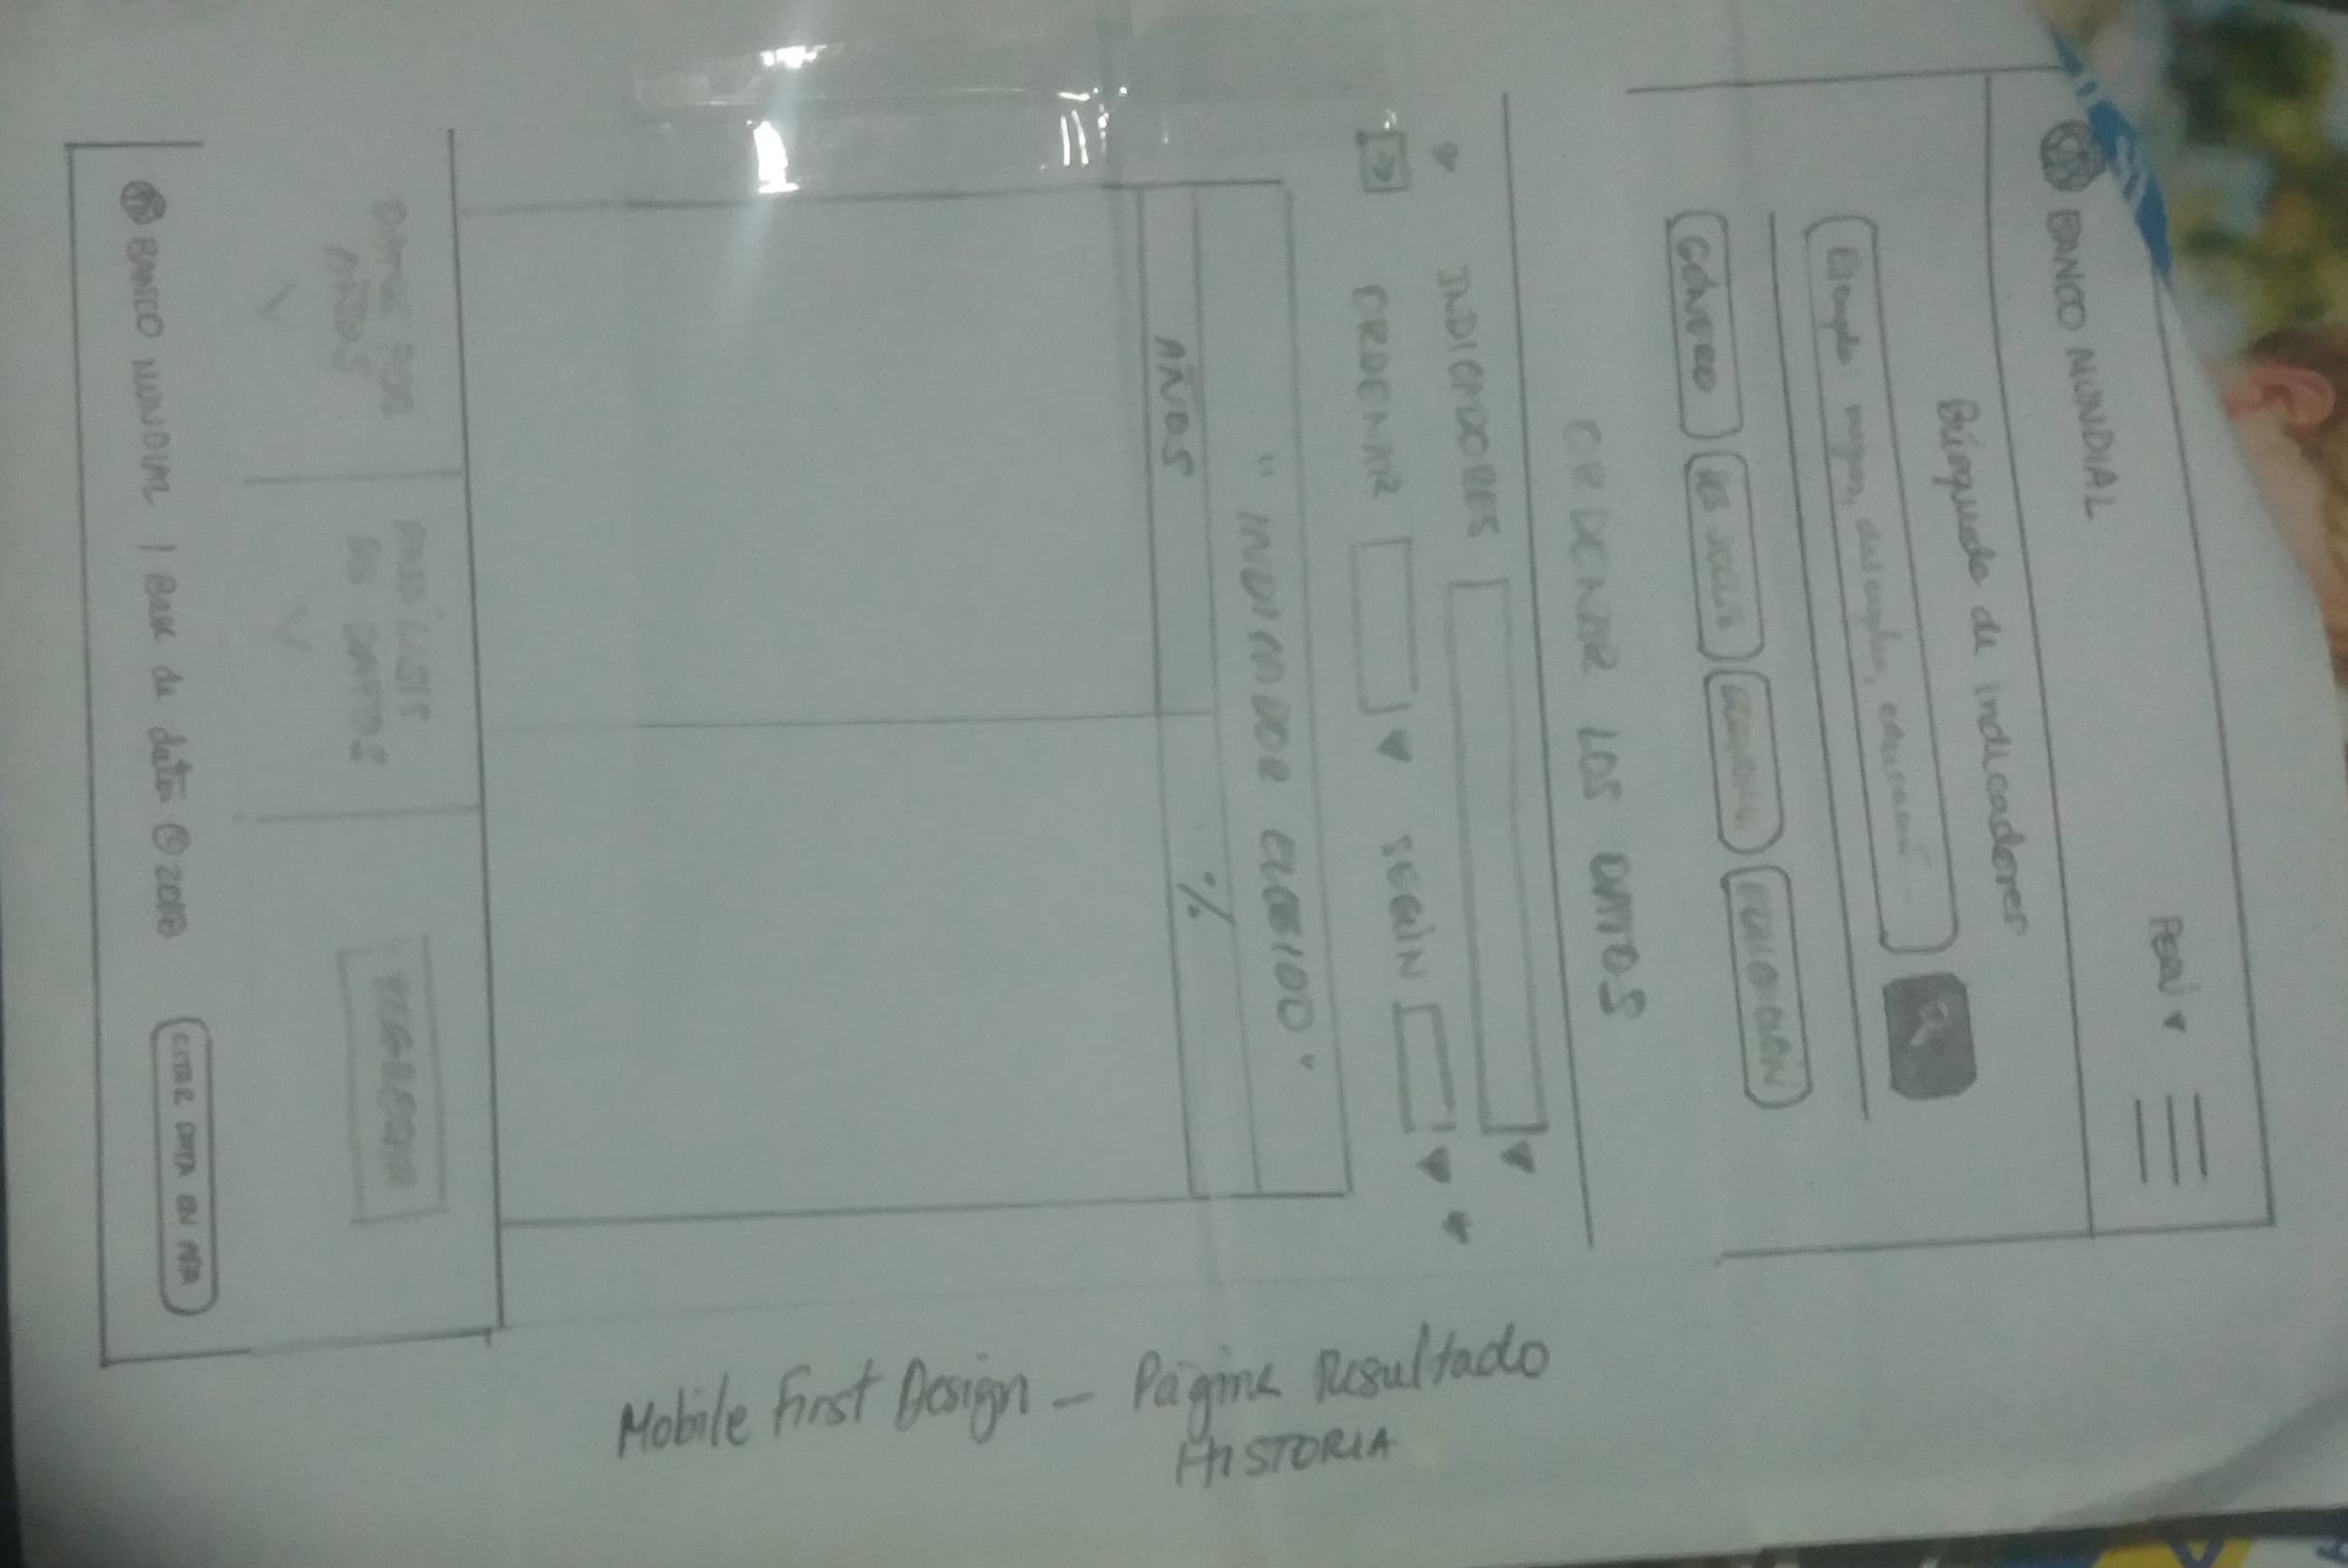 BANCO MUNDIAL
PERÚ
Búsqueda de indicadores
Ejemplo: mujeres, desempleo, educación...
GÉNERO
POBLACIÓN
ORDENAR LOS DATOS
INDICADORES
ORDENAR SEGÚN
"INDICADOR ELEGIDO"
AÑOS %
DATOS POR AÑOS
ANÁLISIS DE DATOS
REGRESAR
BANCO MUNDIAL | Base de datos © 2018
CITAR DATA EN APA
Mobile First Design - Página Resultado
HISTORIA